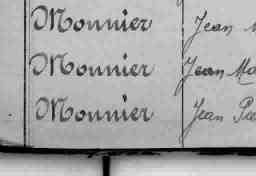 Monnier Jean
Monnier Jean Ma
Monnier Jean